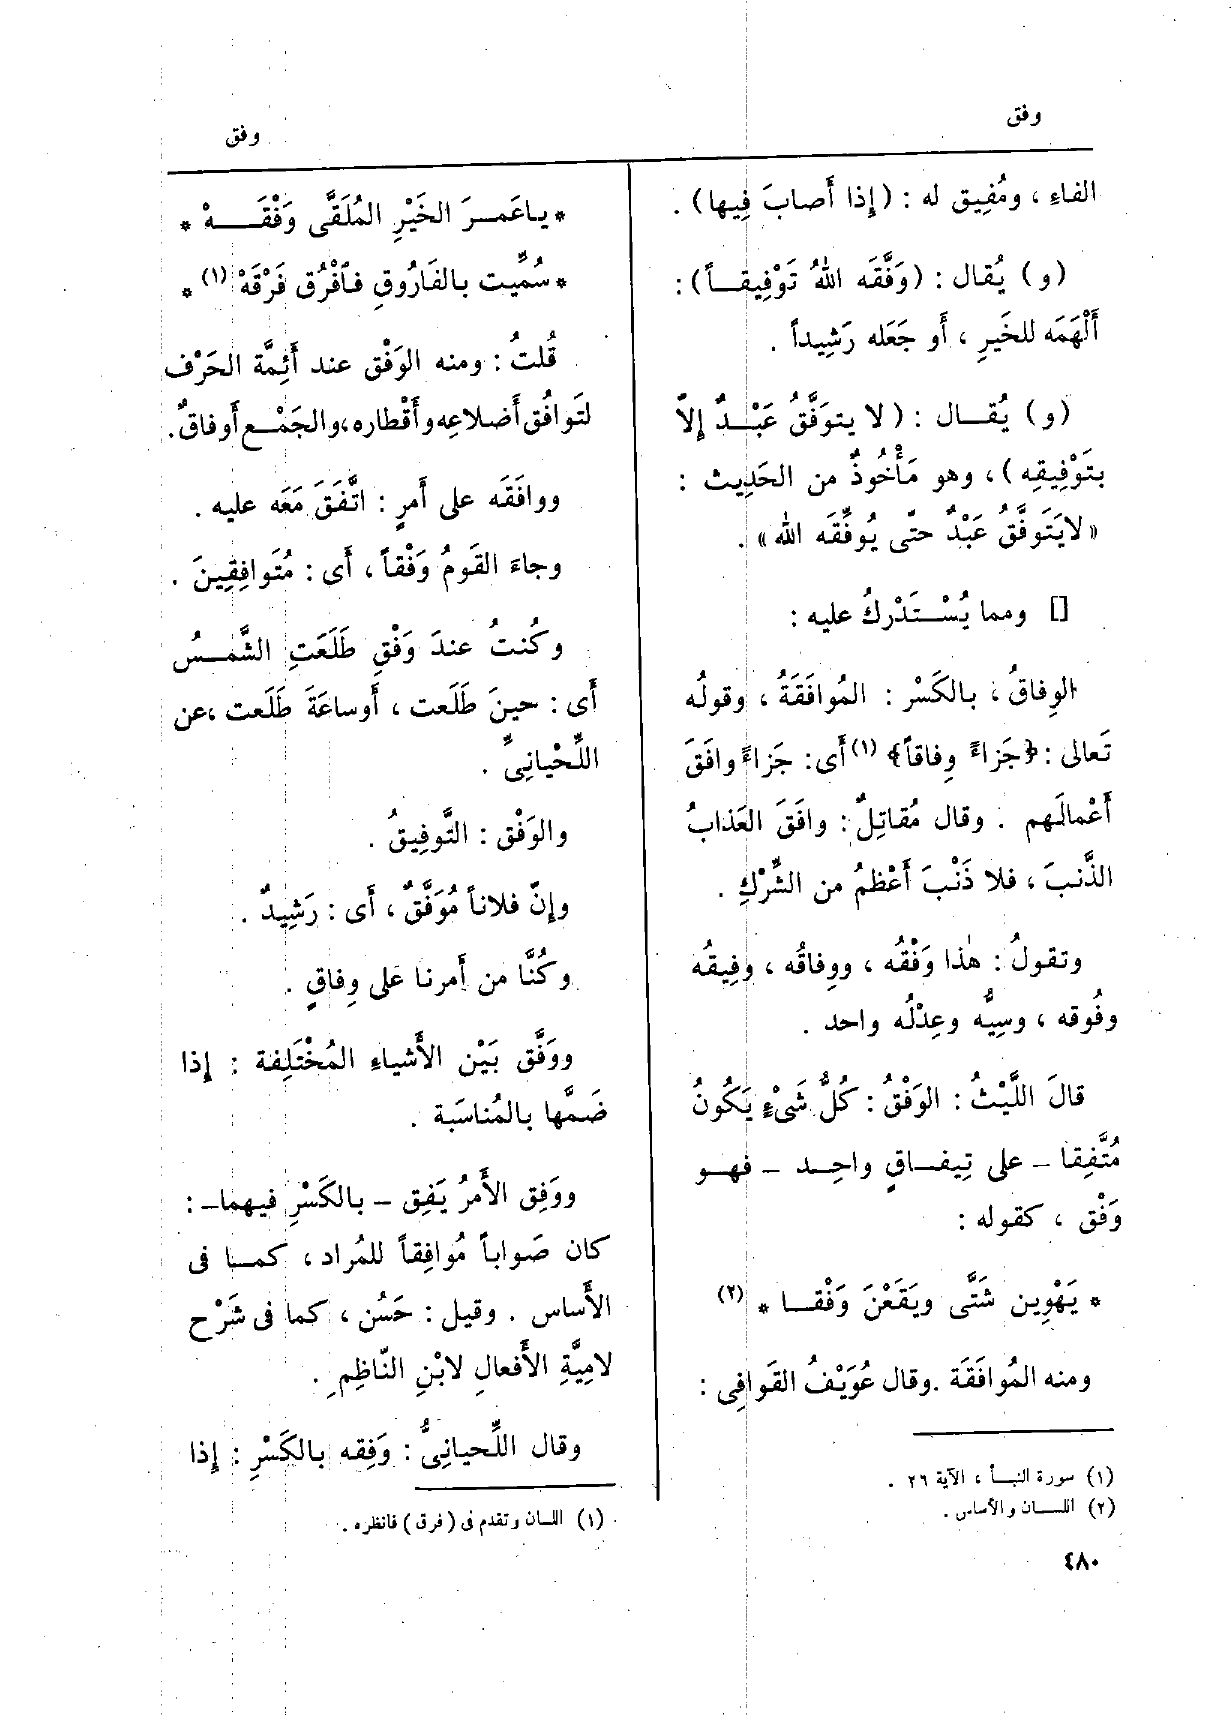 وفق
وفق
الفاءِ ، ومُفِيق له : (إِذا أَصابَ فِيها) .
(و) يُقال : (وَفَّقَه اللهُ تَوْفِيقــاً) :
أَلْهَمَه للخَيرِ ، أَو جَعَله رَشِيداً .
(و) يُقــال : ( لا يتوَفَّقُ عَبْــدٌ إِلاَّ
بتَوْفِيقِه ) ، وهو مَأْخُوذٌ من الحَدِيث :
«لايَتَوفَّقُ عَبْدٌ حتّى يُوفِّقَه الله» .
[] ومما يُسْــتَدْركُ عليه :
الوِفاقُ ، بالكَسْر : المُوافَقَةُ ، وقولُه
تَعالى : ﴿جَزاءً وِفاقاً﴾ (١) أَى: جَزاءً وافَقَ
أَعْمالَهم . وقال مُقاتِلٌ : وافَقَ العَذابُ
الذَّنبَ ، فلا ذَنْبَ أَعْظمُ من الشِّرْكِ .
وتقولُ : هٰذا وَفْقُه ، ووِفاقُه ، وفِيقُه
وفُوقه ، وسِيُّه وعِدْلُه واحد .
قالَ اللَّيْثُ : الوَفْقُ : كُلُّ شَىْءٍ يَكُونُ
مُتَّفِقا ـ على تِيفــاقٍ واحِــد ـ فهــو
وَفْق ، كقوله :
* يَهْوِين شَتَّى ويَقَعْنَ وَفْقــا * (٢)
ومنه المُوافَقَة . وقال عُوَيْفُ القَوافِى :
(١) سورة النبــأ ، الآية ٢٦ .
(٢) اللــان والأساس .
٤٨٠
* يـاعَمـرَ الخَيْرِ المُلَقَّى وَفْقَــهْ *
* سُمِّيت بالفَارُوقِ فـافْرُق فَرْقَهْ (١) *
قُلتُ : ومنه الوَفْق عند أَئِمَّة الحَرْف
لتَوافُق أَضلاعِه وأَقْطاره ، والجَمْـع أَوفاقٌ .
ووافَقَه على أَمرٍ : اتَّفَقَ مَعَه عليه .
وجاءَ القَومُ وَفْقاً ، أَى : مُتَوافِقِينَ .
وكُنتُ عندَ وَفْقِ طَلَعَتِ الشَّمــسُ
أَى : حينَ طَلَعت ، أَوساعَةَ طَلَعت ، عن
اللِّحْيانِىِّ .
والوَفْق : التَّوفِيقُ .
وإِنّ فلاناً مُوَفَّقٌ ، أَى : رَشِيدٌ .
وكُنَّا من أَمرنا على وِفاقٍ .
ووَفَّق بَيْن الأَشياءِ المُخْتَلِفة : إِذا
ضَمَّها بالمُناسَبة .
ووَفِق الأَمرُ يَفِق ـ بالكَسْرِ فيهما ـ :
كان صَواباً مُوافِقاً للمُراد ، كمــا فى
الأَساس . وقيل : حَسُن ، كما فى شَرْح
لامِيَّةِ الأَفعالِ لابْنِ النّاظِمِ .
وقال اللِّحيانِىُّ : وَفِقه بالكَسْرِ : إِذا
(١) اللــان وتقدم فى (فرق) فانظره .